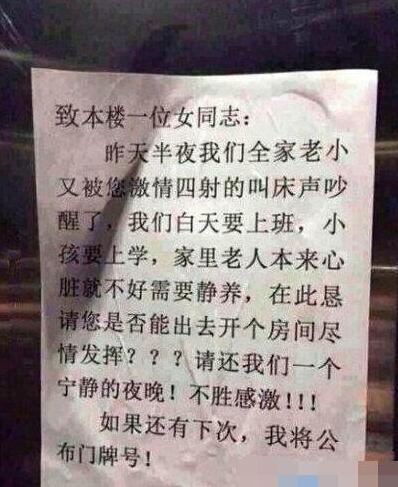 致本楼一位女同志：
昨天半夜我们全家老小
又被您激情四射的叫床声吵
醒了，我们白天要上班，小
孩要上学，家里老人本来心
脏就不好需要静养，在此恳
请您是否能出去开个房间尽
情发挥？？？请还我们一个
宁静的夜晚！不胜感激!!!
如果还有下次，我将公
布门牌号！